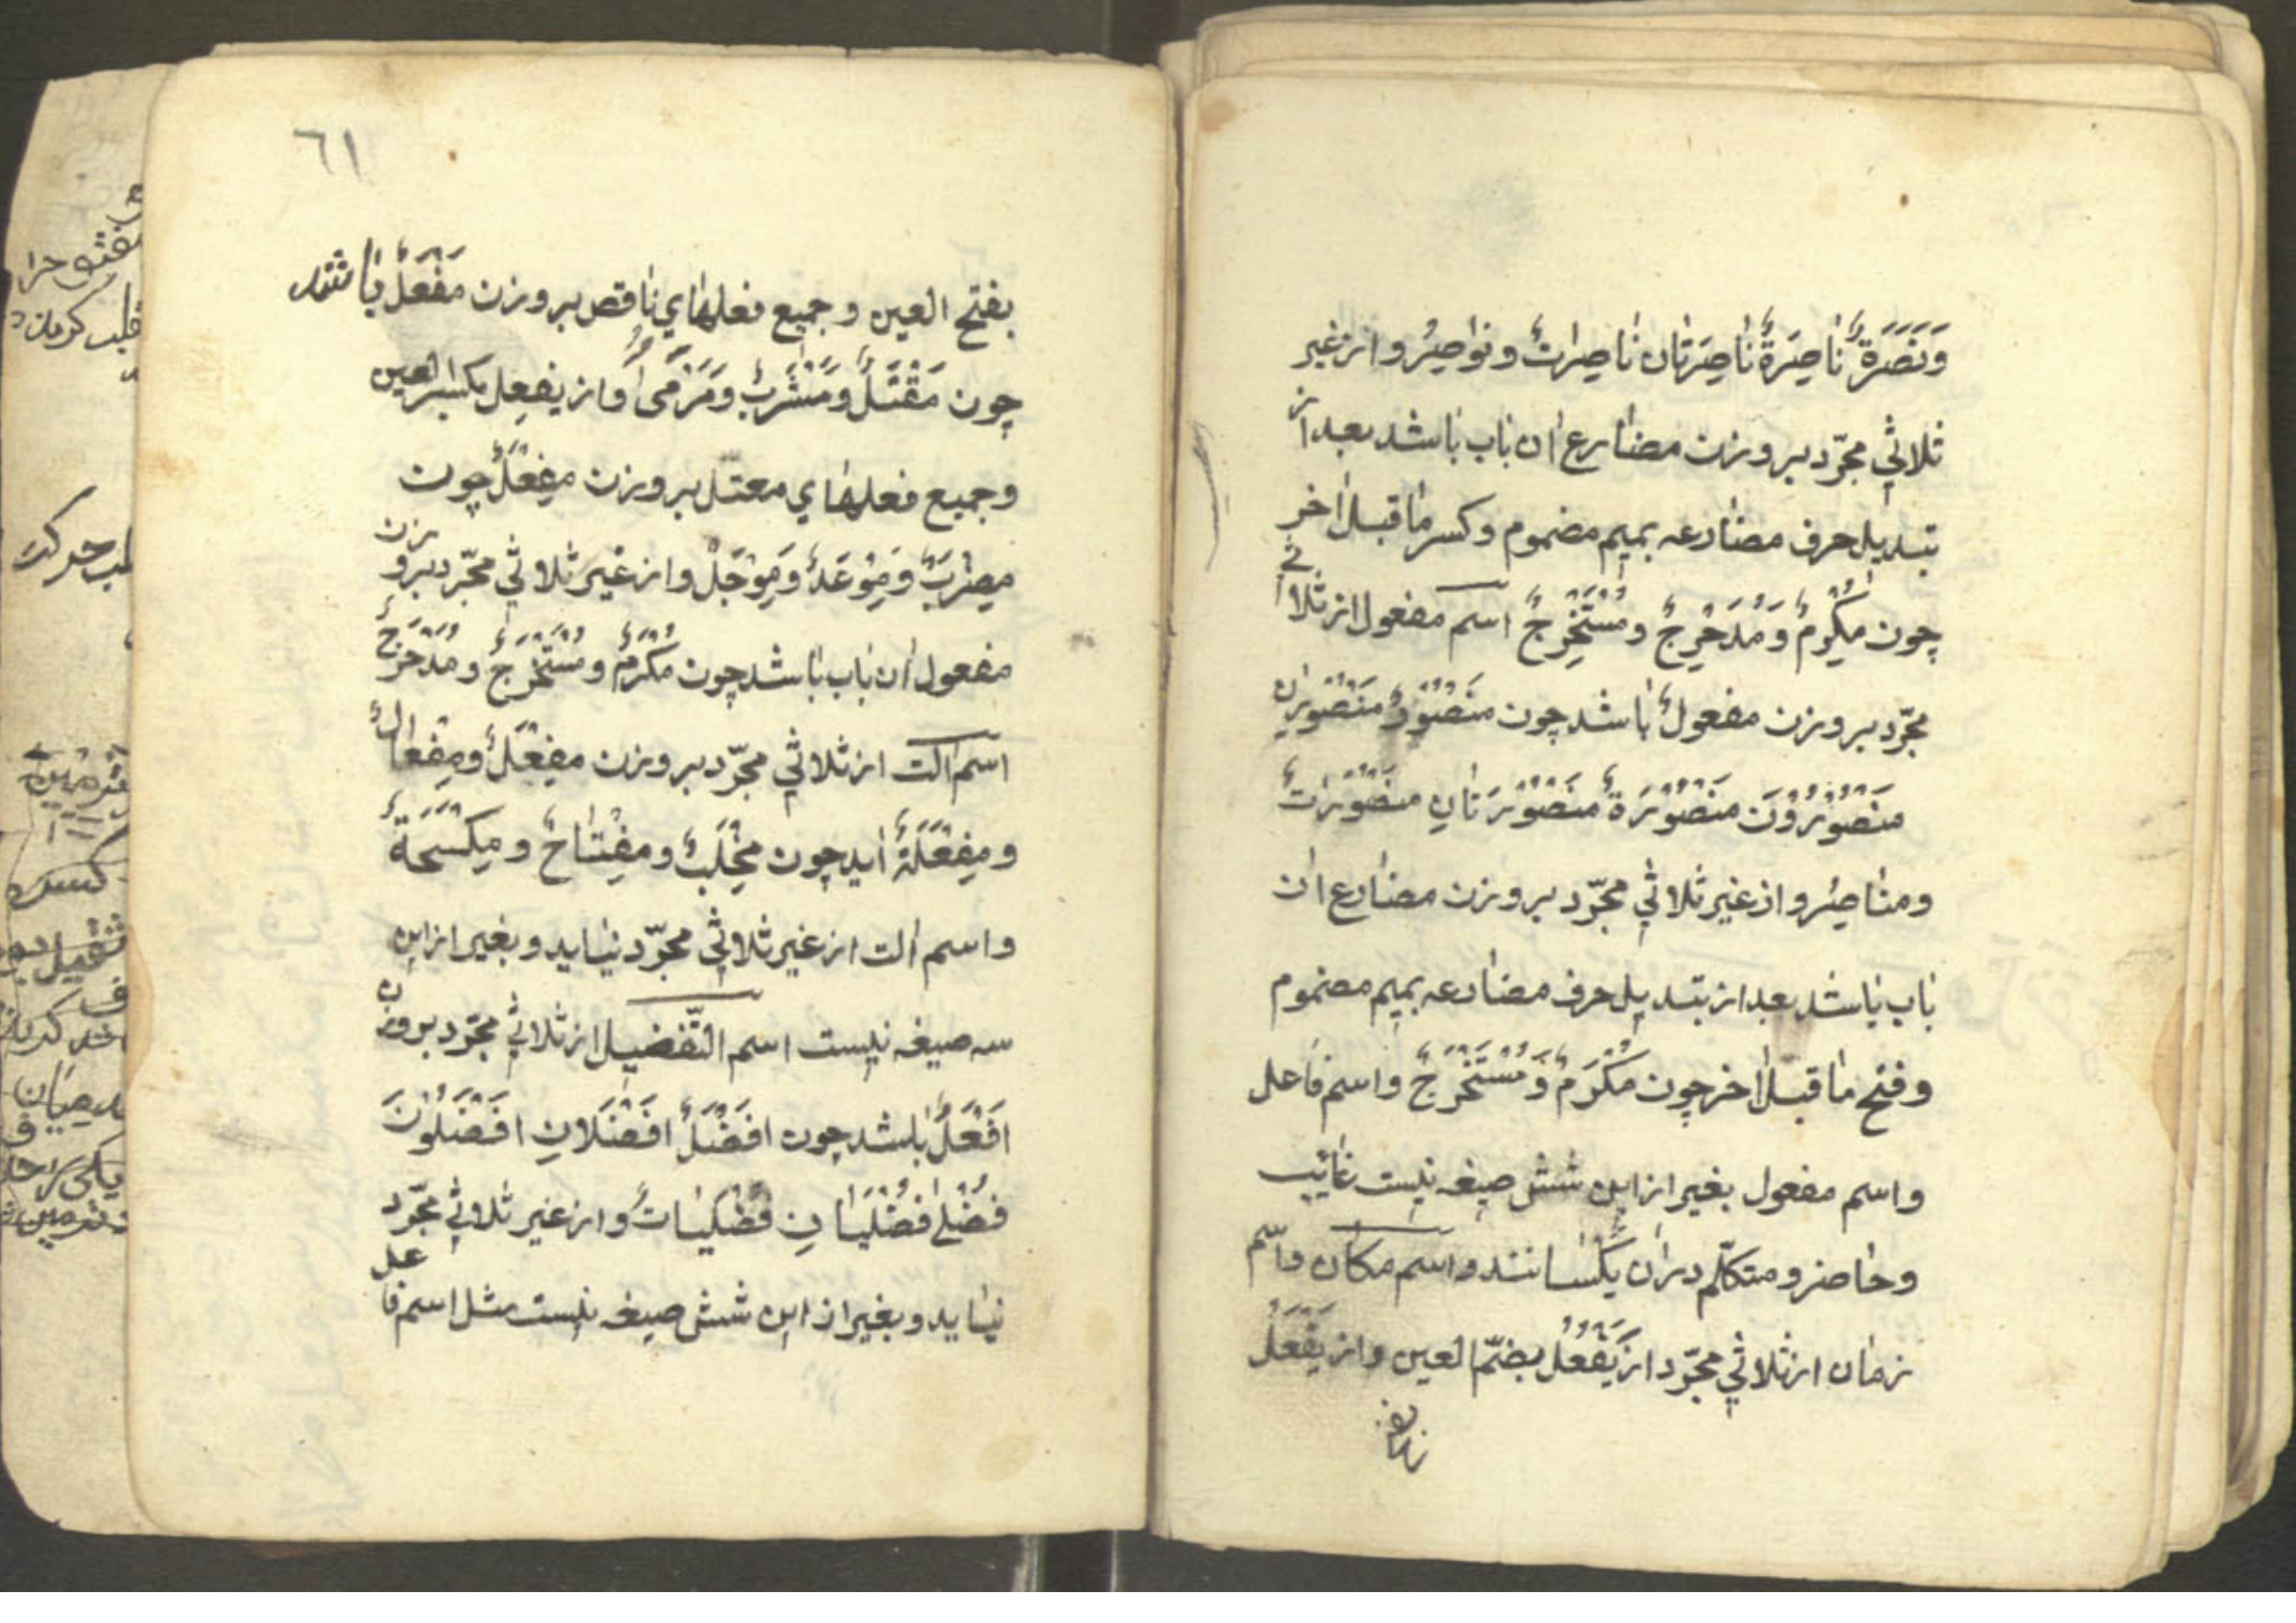 وَنَصَرَةٌ نٰاصِرَةٌ نٰاصِرَتٰان نٰاصِراتٌ ونوٰاصِرُ و از غیر
ثلاثي مجرّد بر وزن مضٰارع ان بٰاب بٰاشد بعد از
تبدیل حرف مضٰارعه بمیم مضموم وکسر مٰا قبل اٰخر
چون مُكْرِمٌ وَ مُدَحْرِجٌ و مُسْتَخْرِجٌ اسم مفعول از ثلاثي
مجرّد بر وزن مفعولٌ بٰاشد چون مَنْصُوْرٌ مَنْصُوْرٰانِ
مَنْصُوْرُوْنَ مَنْصُوْرَةٌ مَنْصُوْرَتٰانِ مَنْصُوْرٰاتٌ
ومنٰاصِرُ و از غیر ثلاثي مجرّد بر وزن مضٰارع ان
بٰاب بٰاشد بعد از تبدیل حرف مضٰارعه بمیم مضموم
وفتح مٰا قبل اٰخر چون مُكْرَمٌ وَ مُسْتَخْرَجٌ واسم فٰاعل
واسم مفعول بغیر از این شش صیغه نیست غٰائب
وحٰاضر و متکلّم در ان یکسٰانند و اسم مکٰان و اسم
زمٰان از ثلاثي مجرّد از يَفْعُلُ بضمّ العین و از يَفْعَلُ
٦١
بفتح العین و جمیع فعلهٰاي نٰاقص بر وزن مَفْعَلٌ بٰاشند
چون مَقْتَلٌ و مَشْرَبٌ و مَرْمىً و از یفعِل بکسر العین
و جمیع فعلهٰاي معتل بر وزن مَفْعِلٌ چون
مضرِبٌ و مَوْعِدٌ و مَوْجِلٌ و از غیر ثلاثي مجرّد بر وزن
مفعول ان بٰاب بٰاشد چون مُكْرَمٌ و مُسْتَخْرَجٌ و مُدَحْرَجٌ
اسم اٰلت از ثلاثي مجرّد بر وزن مِفْعَلٌ و مِفْعٰالٌ
و مِفْعَلَةٌ اید چون مِحْلَبٌ و مِفْتٰاحٌ و مِكْسَحَةٌ
و اسم اٰلت از غیر ثلاثي مجرّد نیٰاید و بغیر از این
سه صیغه نیست اسم التّفضیل از ثلاثي مجرّد بر وزن
اَفْعَلٌ بٰاشد چون اَفْضَلٌ اَفْضَلٰانِ اَفْضَلُوْنَ
فُضْلیٰ فُضْلَيٰانِ فُضْلَيٰاتٌ و از غیر ثلاثي مجرّد
نیٰاید و بغیر از این شش صیغه نیست مثل اسم فٰاعل